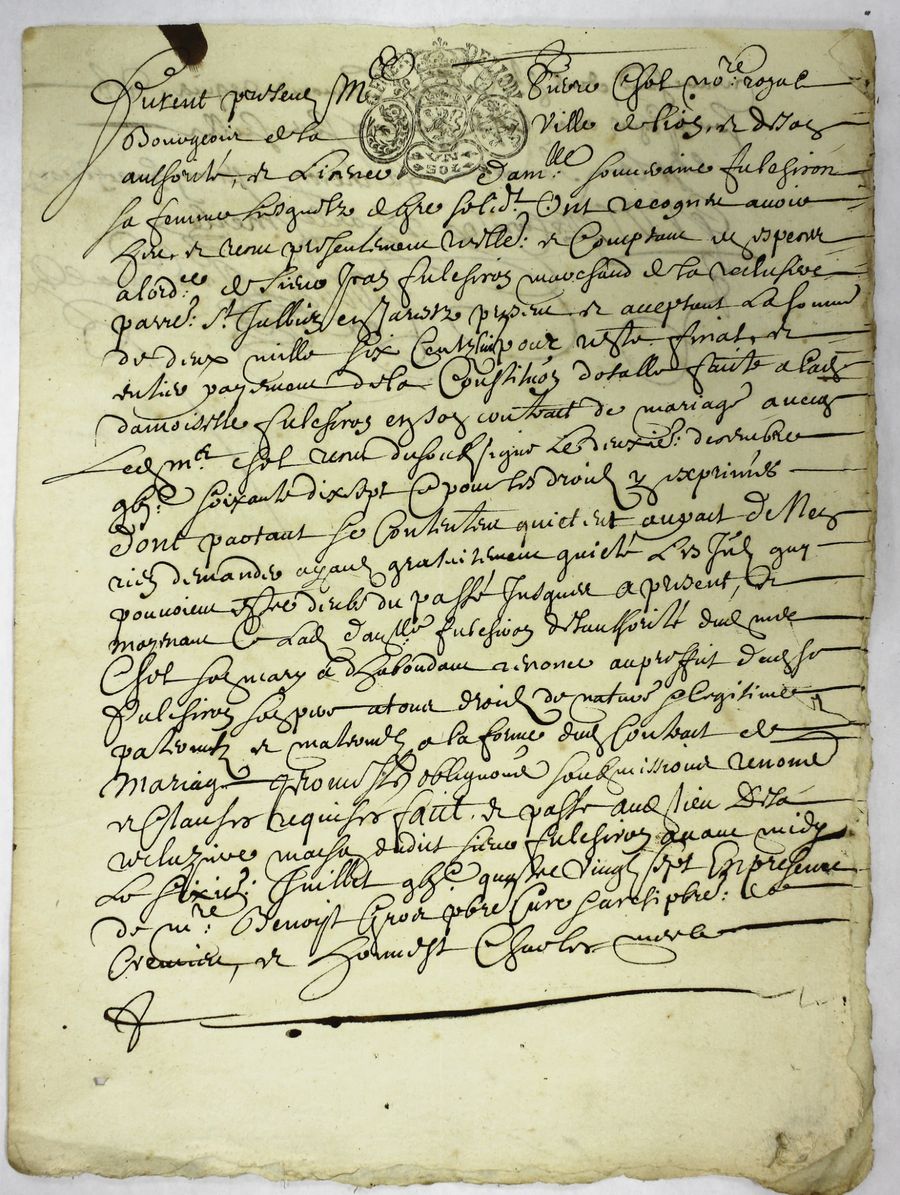 Furent presens Mre Pierre Chol nore royal
Bourgeois de la Ville de Lion, et de son
authorité, et Licence damlle fulchiron
sa femme lesquelz de gre solidt. Ont recogneu avoir
heu, et receu presentement reellt. et Comptant en especes
de sieur Jean fulchiron marchand de la recluziere
parre. St Jullien en Jarestz present et acceptant La somme
de deux mille six Centz pour reste final, et
entier payement de la Constituon dotalle faite a lade
damoiselle fulchiron en son contrait de mariage avecq
Led mre Chol receu du soubsigne Le deuxie. decembre
soixante dix sept Ce pour les droicts y exprimés
dont partant se Contentent quictent au pact de Ne
rien demander ayant gratuitement quicté Les
pouvoient estre deubz du passé Jusques a present, et
moyenant Ce Lad damlle fulchiron de l'authorité dud mre
Chol son mary a d'habondant renoncé au proffit dud sr
fulchiron son pere a tous droicts de nature legitime
paternelz et maternelz a la forme dud Contrait de
Mariage obligaons soubmissions renonce
et Clauses requises fait, et passé aud lieu de la
recluziere maison dudict sieur fulchiron avant midy
Le sixie. Juillet quatre vingt sept En presence
de mre. Benoist Gros pbre Curé archipbre. de
et honnest Charles merle